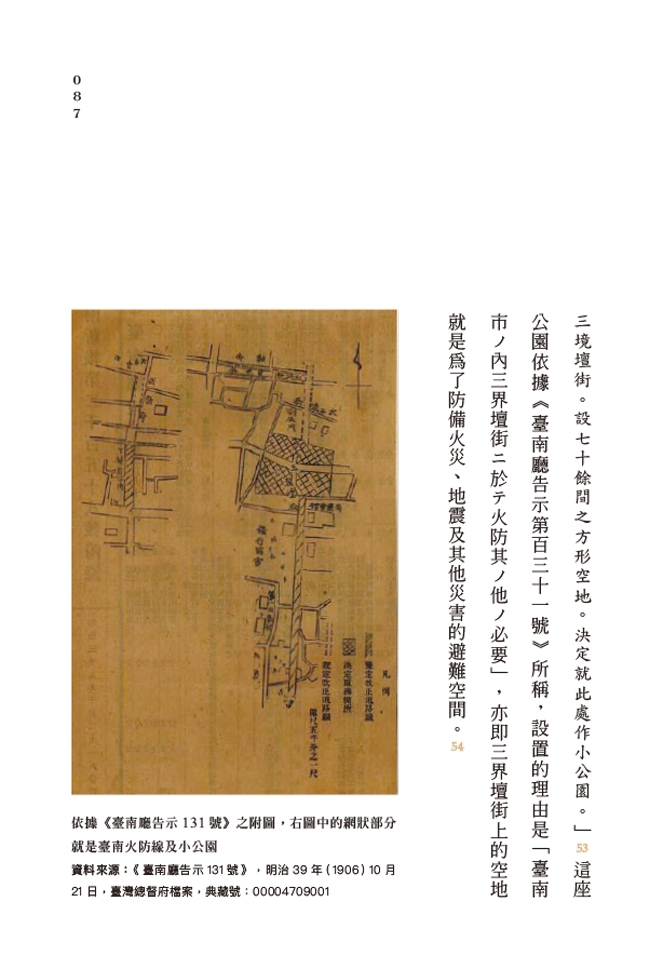 087
三境壇街。設七十餘間之方形空地。決定就此處作小公園。」53這座
公園依據《臺南廳告示第百三十一號》所稱，設置的理由是「臺南
市ノ內三界壇街ニ於テ火防其ノ他ノ必要」，亦即三界壇街上的空地
就是為了防備火災、地震及其他災害的避難空間。54
凡例
決定取拂個所
既定改正道路線
縮尺五千分之一尺
依據《臺南廳告示 131 號》之附圖，右圖中的網狀部分
就是臺南火防線及小公園
資料來源：《臺南廳告示 131 號》，明治 39 年（1906）10 月
21 日，臺灣總督府檔案，典藏號：00004709001